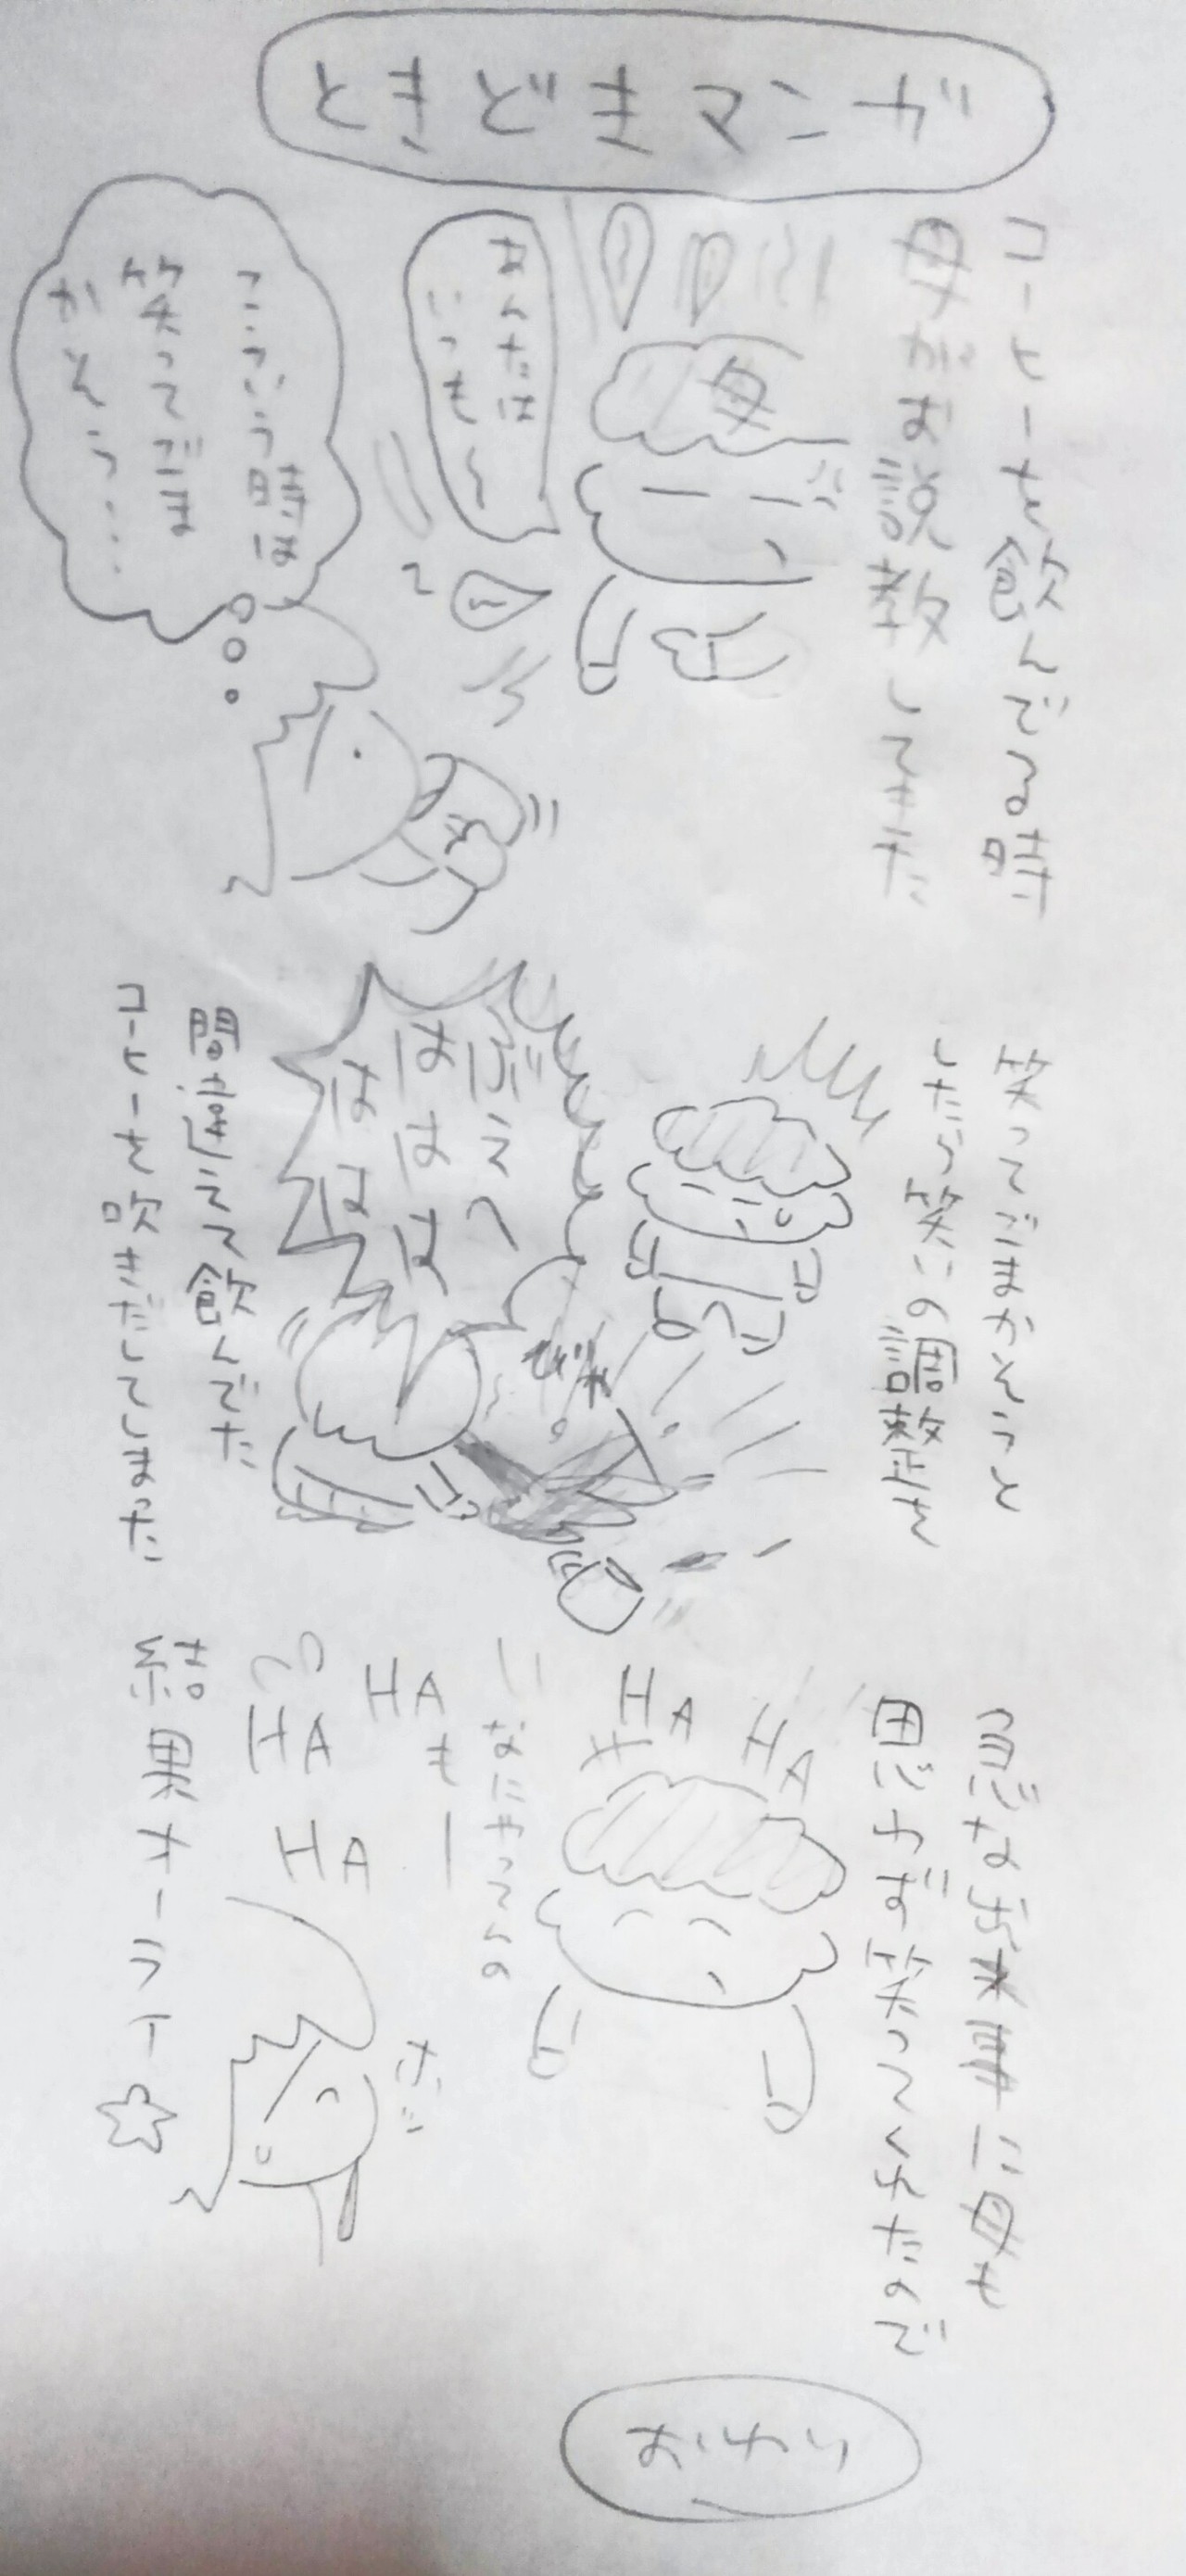 ときどきマンガ
コーヒーを飲んでる時
母がお説教してきた
母
あんたは
いっも～
こういう時は
笑ってごま
かそう…
笑ってごまかそうと
したら笑いの調整を
ぶえへ
ははは
はは
間違えて飲んでた
コーヒーを吹きだしてしまった
急な出来事に母も
思わず笑ってくれたので
HA
HA
なにやってんの
もー
HA
HA
HA
結果オーライ☆
おわり